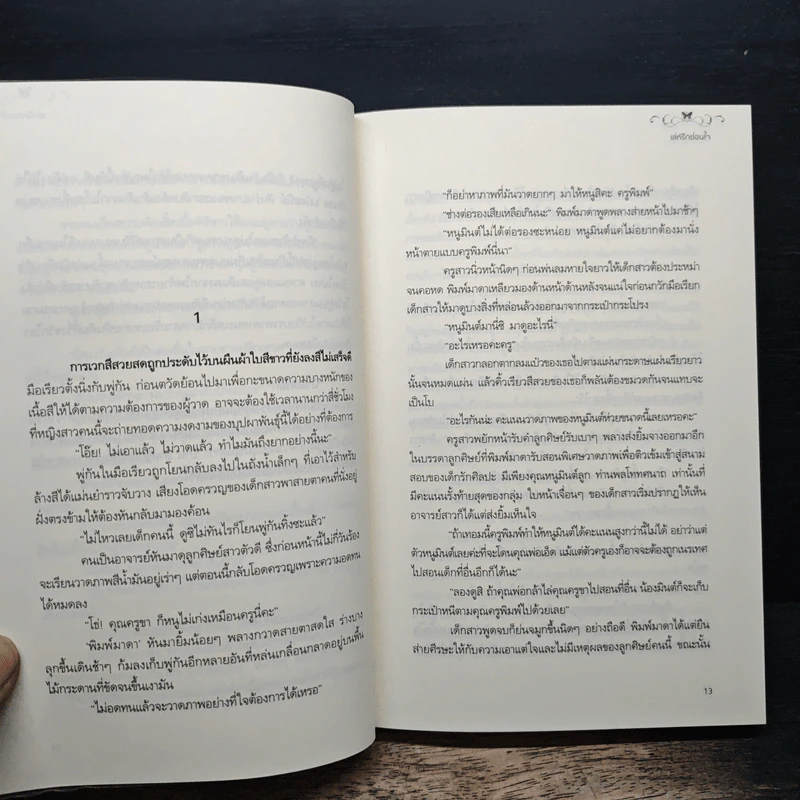 1
การเวกสีสวยสดถูกประดับไว้บนผืนผ้าใบสีขาวที่ยังลงสีไม่เสร็จดี
มือเรียวตั้งนิ่งกับพู่กัน ก่อนตวัดย้อนไปมาเพื่อกะขนาดความบางหนักของ
เนื้อสีให้ได้ตามความต้องการของผู้วาด อาจจะต้องใช้เวลานานกว่าสี่ชั่วโมง
ที่หญิงสาวคนนี้จะถ่ายทอดความงดงามของบุปผาพันธุ์นี้ได้อย่างที่ต้องการ
“โอ๊ย! ไม่เอาแล้ว ไม่วาดแล้ว ทำไมมันถึงยากอย่างนี้นะ”
พู่กันในมือเรียวถูกโยนกลับลงไปในถังน้ำเล็กๆ ที่เอาไว้สำหรับ
ล้างสีได้แม่นยำราวจับวาง เสียงโอดครวญของเด็กสาวพาสายตาคนที่นั่งอยู่
ฝั่งตรงข้ามให้ต้องหันกลับมามองค้อน
“ไม่ไหวเลยเด็กคนนี้ ดูซิไม่ทันไรก็โยนพู่กันทิ้งซะแล้ว”
คนเป็นอาจารย์หันมาดุลูกศิษย์สาวตัวดี ซึ่งก่อนหน้านี้ไม่กี่วันร้อง
จะเรียนวาดภาพสีน้ำมันอยู่เร่าๆ แต่ตอนนี้กลับโอดครวญเพราะความอดทน
ได้หมดลง
“โธ่! คุณครูขา ก็หนูไม่เก่งเหมือนครูนี่คะ”
‘พิมพ์มาดา’ หันมายิ้มน้อยๆ พลางกวาดสายตาสดใส ร่างบาง
ลุกขึ้นเดินช้าๆ ก้มลงเก็บพู่กันอีกหลายอันที่หล่นเกลื่อนกลาดอยู่บนพื้น
ไม้กระดานที่ขัดจนขึ้นเงามัน
“ไม่อดทนแล้วจะวาดภาพอย่างที่ใจต้องการได้เหรอ”
เล่ห์รักซ่อนใจ
“ก็อย่าหาภาพที่มันวาดยากๆ มาให้หนูสิคะ ครูพิมพ์”
“ช่างต่อรองเสียเหลือเกินนะ” พิมพ์มาดาพูดพลางส่ายหน้าไปมาช้าๆ
“หนูมินต์ไม่ได้ต่อรองซะหน่อย หนูมินต์แค่ไม่อยากต้องมานั่ง
หน้าตายแบบครูพิมพ์นี่นา”
ครูสาวนิ่วหน้านิดๆ ก่อนพ่นลมหายใจยาวให้เด็กสาวต้องประหม่า
จนคอหด พิมพ์มาดาเหลียวมองด้านหน้าด้านหลังจนแน่ใจก่อนกวักมือเรียก
เด็กสาวให้มาดูบางสิ่งที่หล่อนล้วงออกมาจากกระเป๋ากระโปรง
“หนูมินต์มานี่ซิ มาดูอะไรนี่”
“อะไรเหรอคะครู”
เด็กสาวกลอกตากลมแป๋วของเธอไปตามแผ่นกระดาษแผ่นเรียวยาว
นั้นจนหมดแผ่น แล้วคิ้วเรียวสีสวยของเธอก็พลันต้องขมวดกันจนแทบจะ
เป็นโบ
“อะไรกันน่ะ คะแนนวาดภาพของหนูมินต์ห่วยขนาดนี้เลยเหรอคะ”
ครูสาวพยักหน้ารับคำลูกศิษย์รับเบาๆ พลางส่งยิ้มจางออกมาอีก
ในบรรดาลูกศิษย์ที่พิมพ์มาดารับสอนพิเศษวาดภาพเพื่อติวเข้มเข้าสู่สนาม
สอบของเด็กรักศิลปะ มีเพียงคุณหนูมินต์ลูก ท่านพลโทศนาถ เท่านั้นที่
มีคะแนนรั้งท้ายสุดของกลุ่ม ใบหน้าเจื่อนๆ ของเด็กสาวเริ่มปรากฏให้เห็น
อาจารย์สาวก็ได้แต่ส่งยิ้มเห็นใจ
“ถ้าเทอมนี้ครูพิมพ์ทำให้หนูมินต์ได้คะแนนสูงกว่านี้ไม่ได้ อย่าว่าแต่
ตัวหนูมินต์เลยค่ะที่จะโดนคุณพ่อเอ็ด แม้แต่ตัวครูเองก็อาจจะต้องถูกเนรเทศ
ไปสอนเด็กที่อื่นอีกก็ได้นะ”
“ลองดูสิ ถ้าคุณพ่อกล้าไล่คุณครูขาไปสอนที่อื่น น้องมินต์ก็จะเก็บ
กระเป๋าหนีตามคุณครูพิมพ์ไปด้วยเลย”
เด็กสาวพูดจบก็ย่นจมูกขึ้นนิดๆ อย่างถือดี พิมพ์มาดาได้แต่ยืน
ส่ายศีรษะให้กับความเอาแต่ใจและไม่มีเหตุผลของลูกศิษย์คนนี้ ขณะนั้น
13